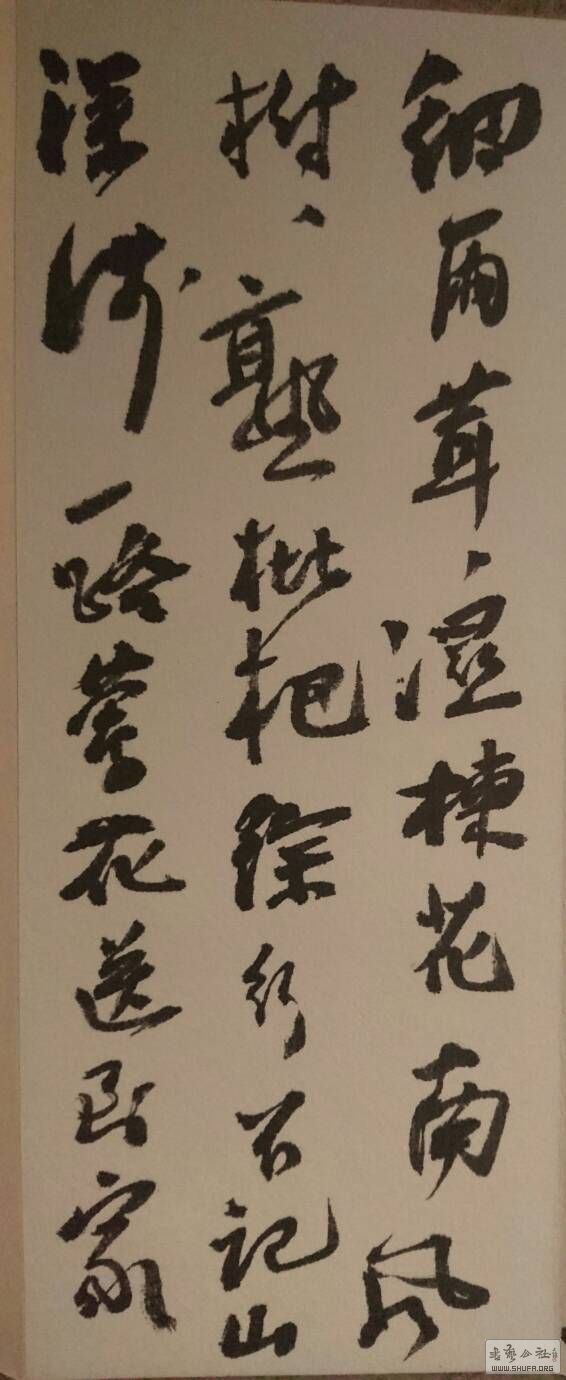 細雨茸、溼楝花南風
樹、熟枇杷徐行不記山
深浅一路鶯花送到家
書藝公社
WWW.SHUFA.ORG